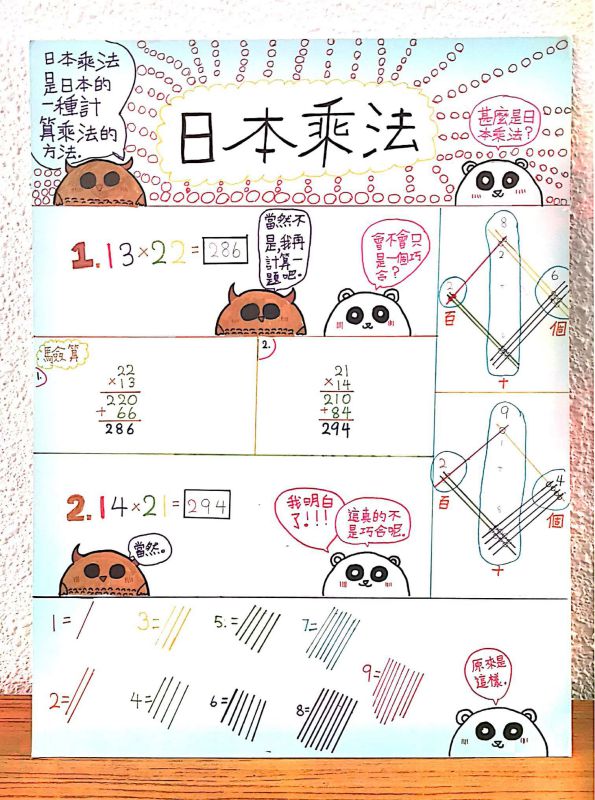 日本乘法
是日本的
一種計
算乘法的
方法.
日本乘法
甚麼是日
本乘法?
1.13×22=286
當然不
是,我再
計算一
題吧.
會不會只
是一個巧
合?
8
2
2
6
百
個
十
驗算
1.
22
×13
220
+ 66
286
2.
21
×14
210
+84
294
9
2
4
百
個
十
2.14×21=294
當然。
我明白
了!!!
這真的不
是巧合呢.
1=
3=
5=
7=
9=
2=
4=
6=
8=
原來是
這樣.